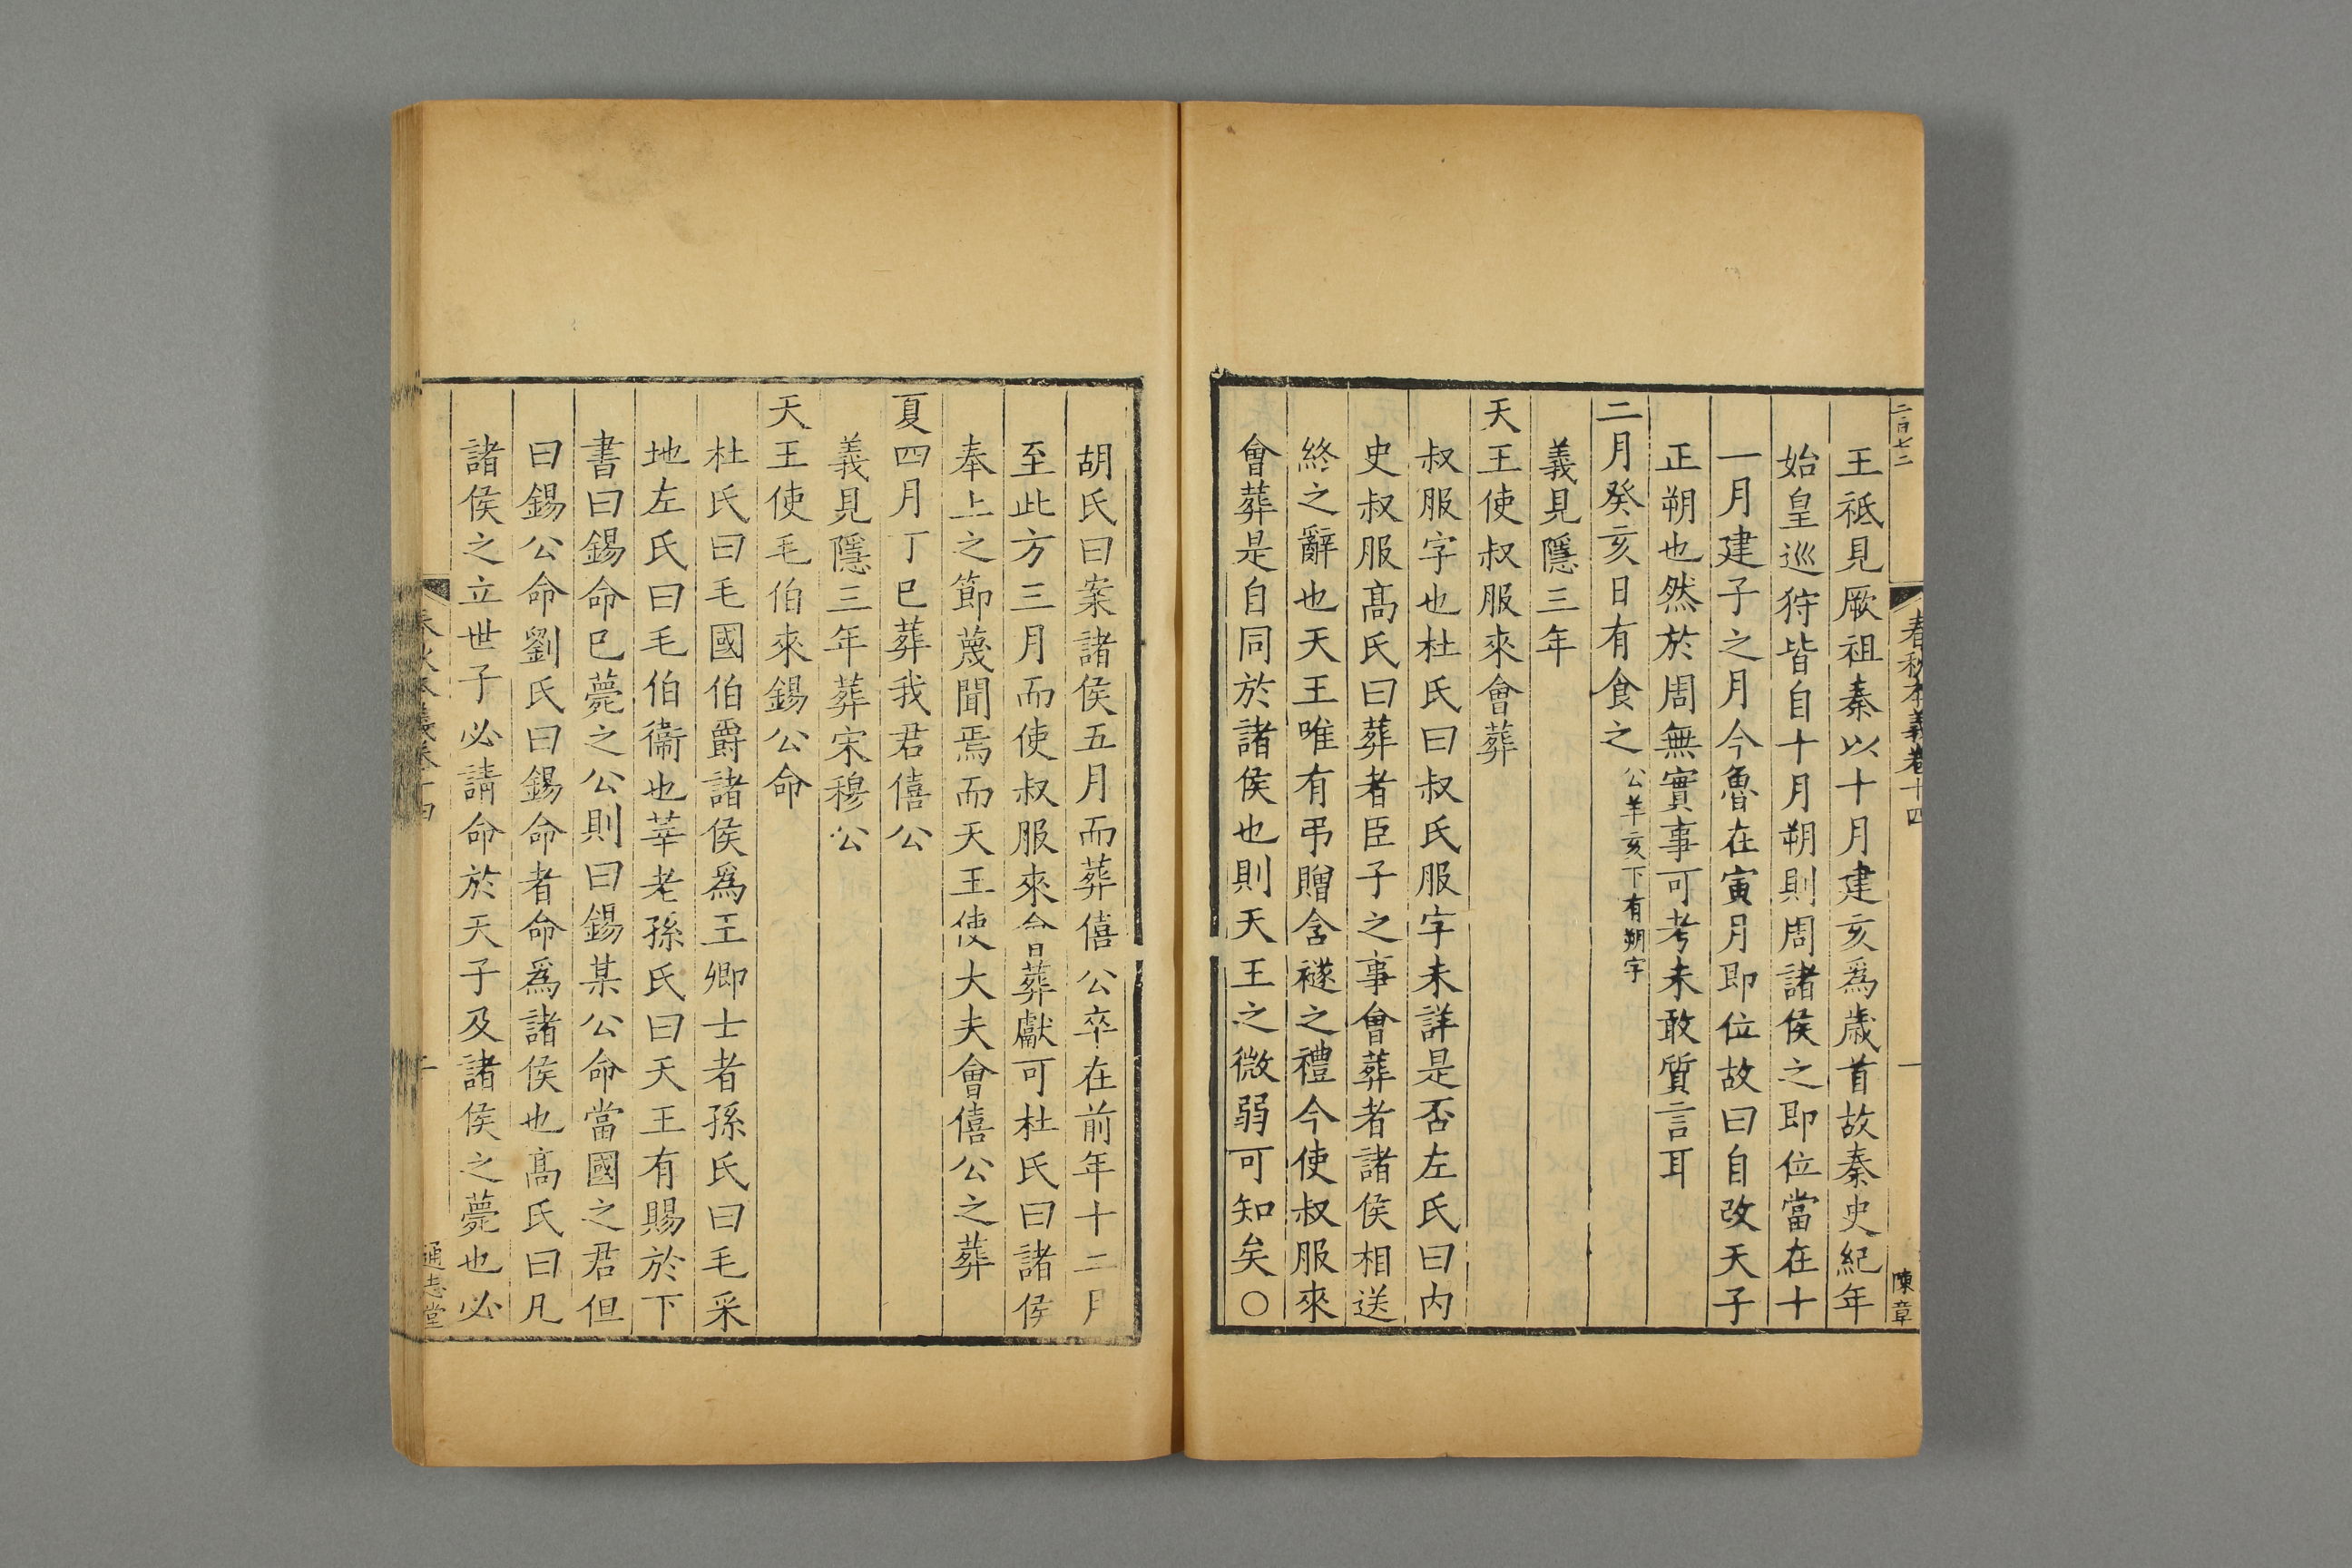 二百七十二
春秋本義卷十四
一
陳章
王祗見厥祖秦以十月建亥爲歲首故秦史紀年
始皇巡狩皆自十月朔則周諸侯之即位當在十
一月建子之月今魯在寅月即位故曰自改天子
正朔也然於周無實事可考未敢質言耳
二月癸亥日有食之公羊亥下有朔字
義見隱三年
天王使叔服來會葬
叔服字也杜氏曰叔氏服字未詳是否左氏曰内
史叔服髙氏曰葬者臣子之事會葬者諸侯相送
終之辭也天王唯有弔贈含襚之禮今使叔服來
會葬是自同於諸侯也則天王之微弱可知矣○
胡氏曰案諸侯五月而葬僖公卒在前年十二月
至此方三月而使叔服來會葬獻可杜氏曰諸侯
奉上之節蔑聞焉而天王使大夫會僖公之葬
夏四月丁巳葬我君僖公
義見隱三年葬宋穆公
天王使毛伯來錫公命
杜氏曰毛國伯爵諸侯爲王卿士者孫氏曰毛采
地左氏曰毛伯衞也莘老孫氏曰天王有賜於下
書曰錫命巳薨之公則曰錫某公命當國之君但
曰錫公命劉氏曰錫命者命爲諸侯也髙氏曰凡
諸侯之立世子必請命於天子及諸侯之薨也必
春秋本義卷十四
二
通志堂